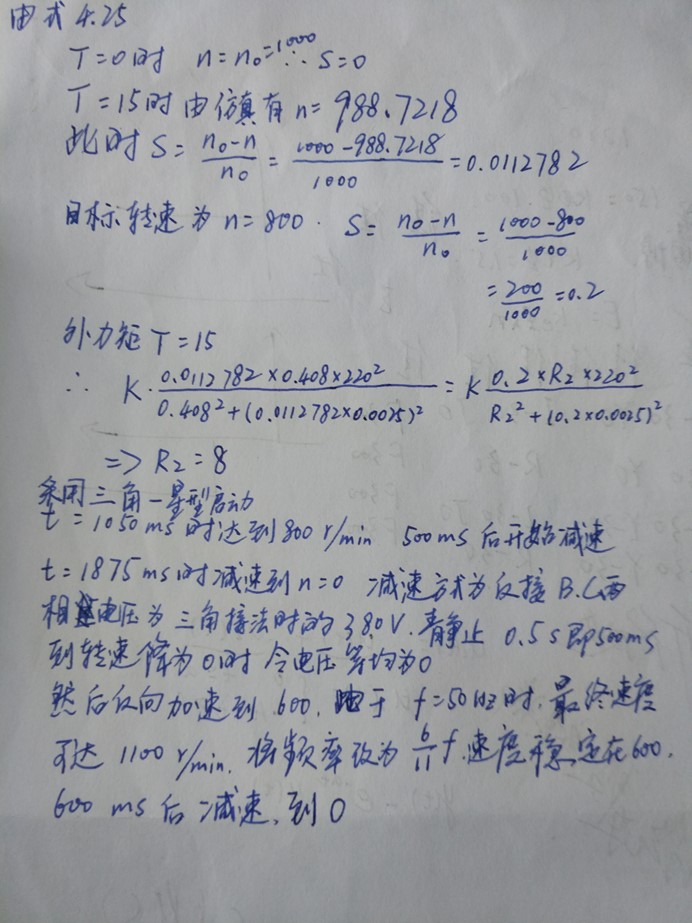 由式 4.25
T=0时 n=n₀=1000 ∴ S=0
T=15时由仿真有 n=988.7218
此时 S= (n₀-n)/n₀ = (1000-988.7218)/1000 =0.0112782
目标转速为 n=800. S= (n₀-n)/n₀ = (1000-800)/1000
= 200/1000 =0.2
外力矩 T=15
∴ K·(0.0112782×0.408×220²)/(0.408²+(0.0112782×0.0025)²) = K (0.2×R₂×220²)/(R₂²+(0.2×0.0025)²)
=> R₂=8
采用三角-星型启动
t=1050ms时达到800r/min 500ms后开始减速
t=1875ms时减速到n=0 减速方式为反接B.C两
相 电压为三角接法时的380V. 静止 0.5s即500ms
到转速降为0时 令电压等均为0
然后反向加速到600. 由于 f=50Hz时. 最终速度
可达 1100r/min. 将频率改为 6/11 f. 速度稳定在600.
600ms后减速. 到0